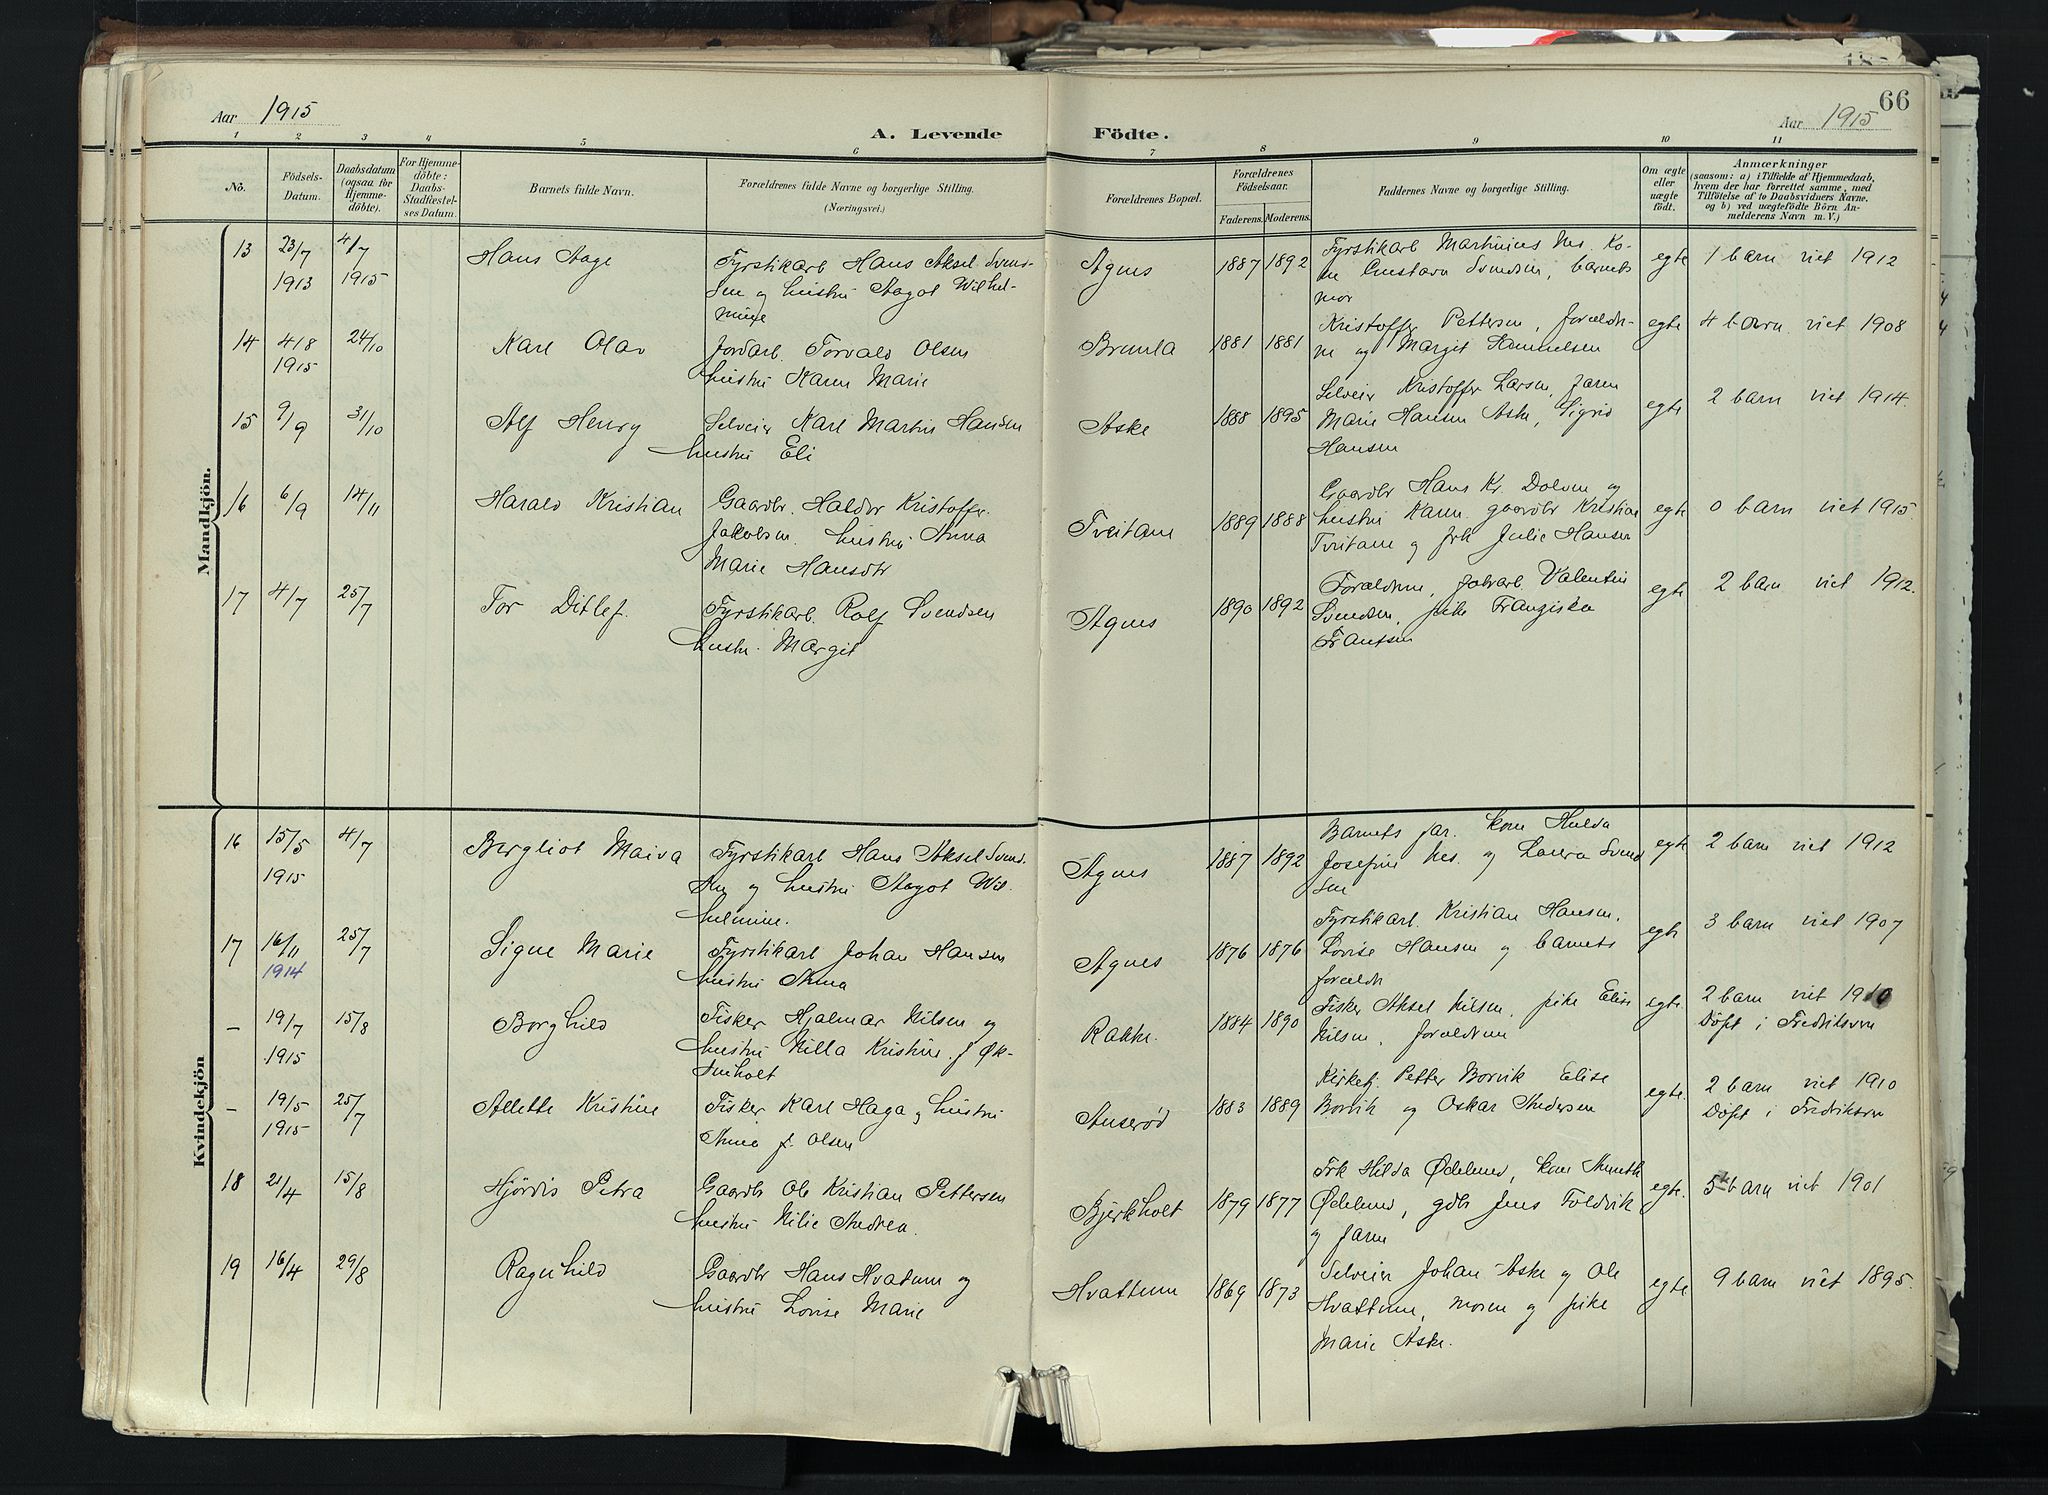 66
Aar 1915
A. Levende Födte.
Aar 1915
1 2 3 4 5 6 7 8 9 10 11
No.
Födsels-
Datum.
Daabsdatum
(ogsaa for
Hjemme-
döbte).
For Hjemme-
döbte:
Daabs-
Stadfæstel-
ses Datum.
Barnets fulde Navn.
Forældrenes fulde Navne og borgerlige Stilling.
(Næringsvei.)
Forældrenes Bopæl.
Forældrenes
Födselsaar.
Faderens. Moderens.
Faddernes Navne og borgerlige Stilling.
Om ægte
eller
uægte
födt.
Anmærkninger
(saasom: a) i Tilfælde af Hjemmedaab,
hvem der har forrettet samme, med
Tilföielse af to Daabsvidners Navne.
og b) ved uægtefödte Börn An-
melderens Navn m. V.)
Mandkjön.
13 23/7 4/7 Hans Aage
1913 1915
Fyrstikarb Hans Aksel Svend-
sen og hustru Aagot Wilhel-
mine
Agnes 1887 1892
Fyrstikarb Martinius Nes. Ko-
ne Gustava Svendsen, barnets
mor
egte 1 barn viet 1912
14 4/8 24/10 Karl Olav
1915
Jordarb. Torvald Olsen
hustru Karen Marie
Brunla 1881 1881
Kristoffer Pettersen, forældre-
ne og Margit
egte 4 barn viet 1908
15 9/9 31/10 Alf Henry
Selveier Karl Martin Hansen
hustru Eli
Aske 1888 1895
Selveier Kristoffer Larsen,
Marie Hansen Aske, Sigrid
Hansen
egte 2 barn viet 1914.
16 6/9 14/11 Harald Kristian
Gaardbr. Haldor Kristoffer
Jakobsen. hustru Anna
Marie Hansdtr
Tveitane 1889 1888
Gaardbr Hans Kr. Dolven og
hustru Karen. gaardbr Kristian
Tveitane og frk Julie Hansen
egte 0 barn viet 1915.
17 4/7 25/7 Tor Ditlef.
Fyrstikarb. Rolf Svendsen
hustr. Margit
Agnes 1890 1892
Forældrene, Valentin
Svendsen, pike Franziska
Frantsen
egte 2 barn viet 1912.
Kvindekjön
16 15/5 4/7 Bergliot Maiva
1915
Fyrstikarb Hans Aksel Svend-
sen og hustru Aagot Wil-
helmine.
Agnes 1887 1892
Barnets far. kone Hulda
Josefine Nes. og Laura Svend
sen
egte 2 barn viet 1912
17 16/11 25/7 Signe Marie
1914
Fyrstikarb Johan Hansen
hustru Anna
Agnes 1876 1876
Fyrstikarb. Kristian Hansen,
Lovise Hansen og barnets
foreldr
egte 3 barn viet 1907
– 19/7 15/8 Borghild
1915
Fisker Hjalmar Nilsen og
hustru Milla Kristine f. Øk-
senholt
Rakke. 1884 1890
Fisker Aksel Nilsen, pike Elise
Nilsen, foreldrene
egte. 2 barn viet 1910
Døpt i Fredriksvern
– 19/5 25/7 Alette Kristine
1915
Fisker Karl Haga og hustru
Anna f. Olsen
Anserød 1883 1889
Kirketj. Petter Borvik Elise
Borvik og Oskar Andersen
egte. 2 barn viet 1910
Døpt i Fredriksvern
18 21/4 15/8 Hjørdis Petra
Gaardbr Ole Kristian Pettersen
hustru Nilie Andrea.
Bjerkholt 1879 1877
Frk Hilda Ødelund, kone Annette
Ødelund, gdbr Jens Foldvik
og faren
egte. 5 barn viet 1901
19 16/4 29/8 Ragnhild
Gaardbr Hans Hvatum og
hustru Lovise Marie
Hvattum 1869 1873
Selveier Johan Aske og Ole
Hvattum, moren og pike
Marie Aske.
egte 9 barn viet 1895.